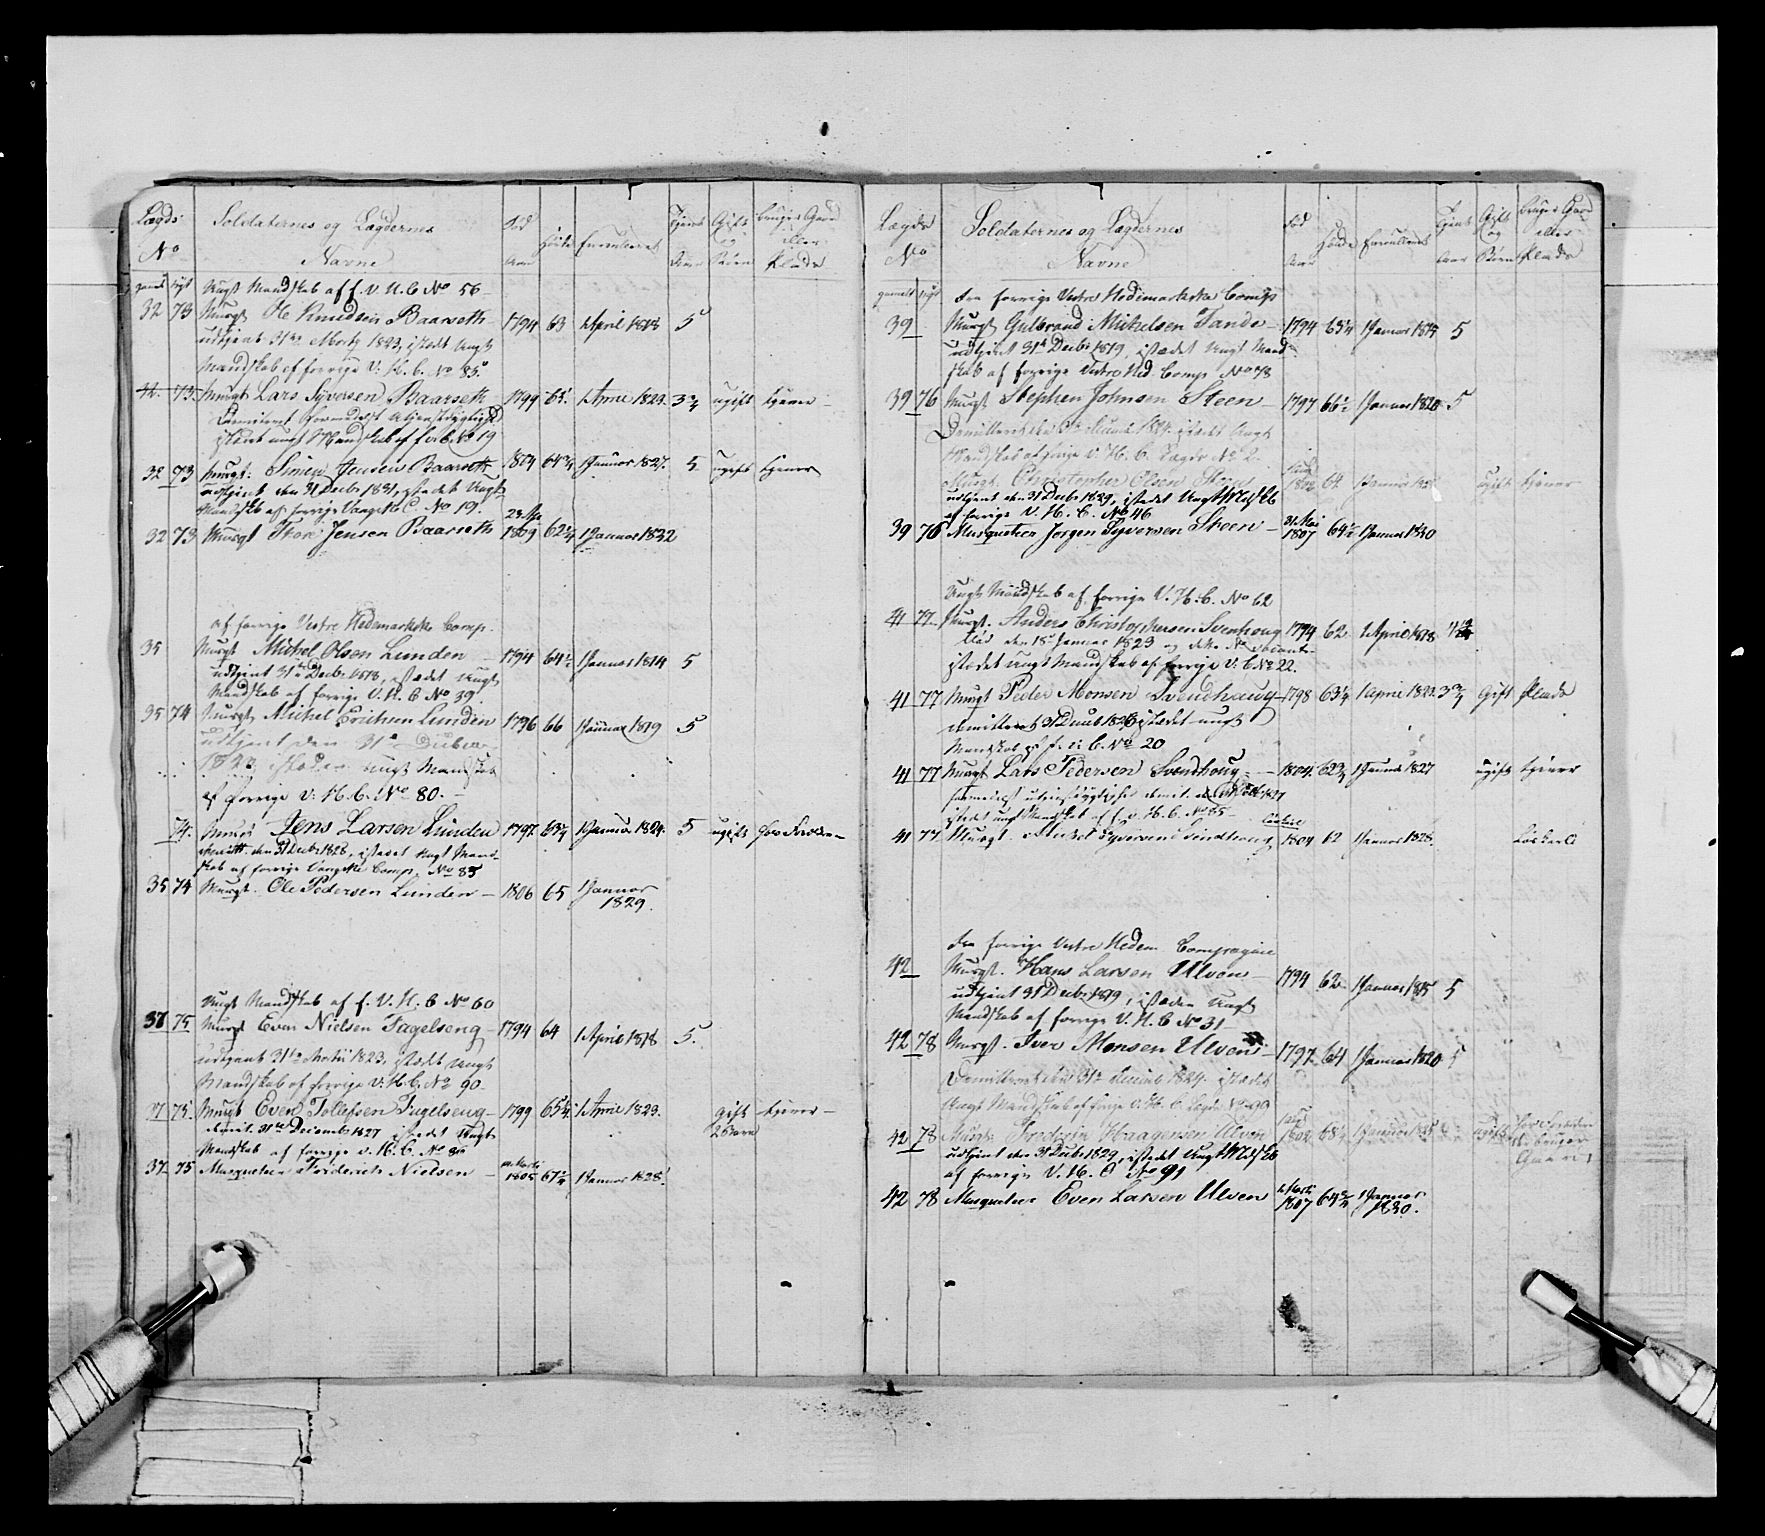 Lægds Soldaternes og Lægdernes Fød Høide Enrulleret Tjent Gift bruger Gaard
No Navne Aar og Børn eller Plads
gaml nyt Ungt Mandskab af f. V. H. C No 56
32 73 Musqt Ole Knudsen Baarseth 1794 63 1 April 1818 5
udtjent 31te Martz 1823, istedet Ungt
Mandskab af forrige V. H. C. No 85
73 Musqt Lars Syversen Baarseth 1799 1 April 1823 3 3/4 ugift tjener
istedet ungt Mandskab af No 19
32 73 Musqt. Simen Jensen Baarseth 1804 64 3/4 1 Januar 1827. 5 ugift tjener
udtjent den 31 Decbr 1831, istedet Ungt
Mandskb af forrige Vangske C. No 19.
32 73 Musqt Thore Jensen Baarseth 1809 62 1/4 1 Januar 1832
af forrige Vestre Hedemarkske Comp.
35 Musqt Michel Olsen Lunden 1794 64 1/2 1 Januar 1814 5
udtjent 31te Decbr 1818, istedet Ungt
Mandskab af forrige V. H. C No 39.
35 74 Musqt Michel Erichsen Lunden 1796 66 1 Januar 1819 5
udtjent den 31te
1823, istedet ungt Mandskab
af forrige V. H. C. No 80.
74. Jens Larsen Lunden 1797 63 1/4 1 Januar 1824. 5 ugift hos Forældre
demitt. den 31 Decbr 1828, istedet Ungt Mand-
skab af forrige Vangske Comp. No 85
35 74 Musqt. Ole Pedersen Lunden 1806 65 1 Januar
1829.
Ungt Mandskab af f. V. H. C No 60
37 75 Musqt Even Nielsen Fagelseng 1794 64 1 April 1818 5.
udtjent 31te Martii 1823, istedet Ungt
Mandskab af forrige V. H. C. No 90
37 75. Musqt Even Tollefsen Fagelseng 1799 65 3/4 1 April 1823. gift tjener
demit. 31te Decembr 1827 istedet Ungt 2 Børn
Mandskab af forrige V. H. C. No 80
37 75 Musqueteer Friderich Nielsen 1805 67 1/4 1 Januar 1828.
Lægds Soldaternes og Lægdernes Fød Høide Enrulleret Tjent Gift bruger Gaard
No Navne Aar Aar og Børn eller Plads
gamelt nyt Fra forrige Vestre Hedemarkske Comp
39 Musqt Gulbrand Mickelsen Tande 1794 63 1/4 1 Januar 1815 5
udtjent 31te Decbr 1819, istedet Ungt Mand-
skab af forrige Vestre Hed. Comp No 78
39 76 Musqt Stephen Johnsen Steen 1797 66 1/2 1 Januar 1820 5
Demitteret den 31te 1824. istedet Ungt
Mandskab af forige V. H. C. Lægd No 2.
Musqt. Christopher Olsen Steen 1802 64. 1 Januar ugift tjener
udtjent den 31 Decbr 1829, istedet Ungt Mdskb
af forrige V. H. C. No 46
39 76 Musqueteer Jørgen Syversen Skeen 31 Mai 1807 64 1/2 1 Januar 1830
Ungt Mandskab af forrige V. H. C. No 62
41 77 Musqt. Anders Christophersen Svenhoug 1794 62 1 April 1818
død den 18 Januar 1823 og dette No Vacant
istedet Ungt Mandskab af forrige V. C. No 22.
41 77 Musqt Peder Monsen Svendhaug 1798 63 1/2 1 April 1823. 3 3/4 Gift Plads
demitteret 31 Decbr 1826 istedet ungt
Mandskab af f. V. C. No 20
41 77 Musqt Lars Pedersen Svendhoug 1804. 62 3/4 1 Januar 1827 ugift tjener
istedet ungt Mandskab af f. V. H. C. No 85
41 77 Musqt. Syversen Svendhoug 1804 62 1 Januar 1828. Løskarl
Fra forrige Vestre Hedem Compagnie
42 Musqt. Hans Larsen Ulven 1794 62 1 Januar 1815 5
udtjent 31 Decbr 1819, istedet Ungt
Mandskab af forrige V. H. C No 31
42 78 Musqt. Iver Monsen Ulven 1797 64 1 Januar 1820 5
Demitteret den 31te 1824. istedet
Ungt Mandskab af forige V. H. C. Lægd No 99
42 78 Musqt. Frederik Haagensen Ulven 1802 68 1/2 1 Januar 1825 ugift
udtjent den 31 Decbr 1829, istedet Ungt Mdskb
af forrige V. H. C No 91
42 78 Musqueteer Even Larsen Ulven 1807 64 3/4 1 Januar
1830.